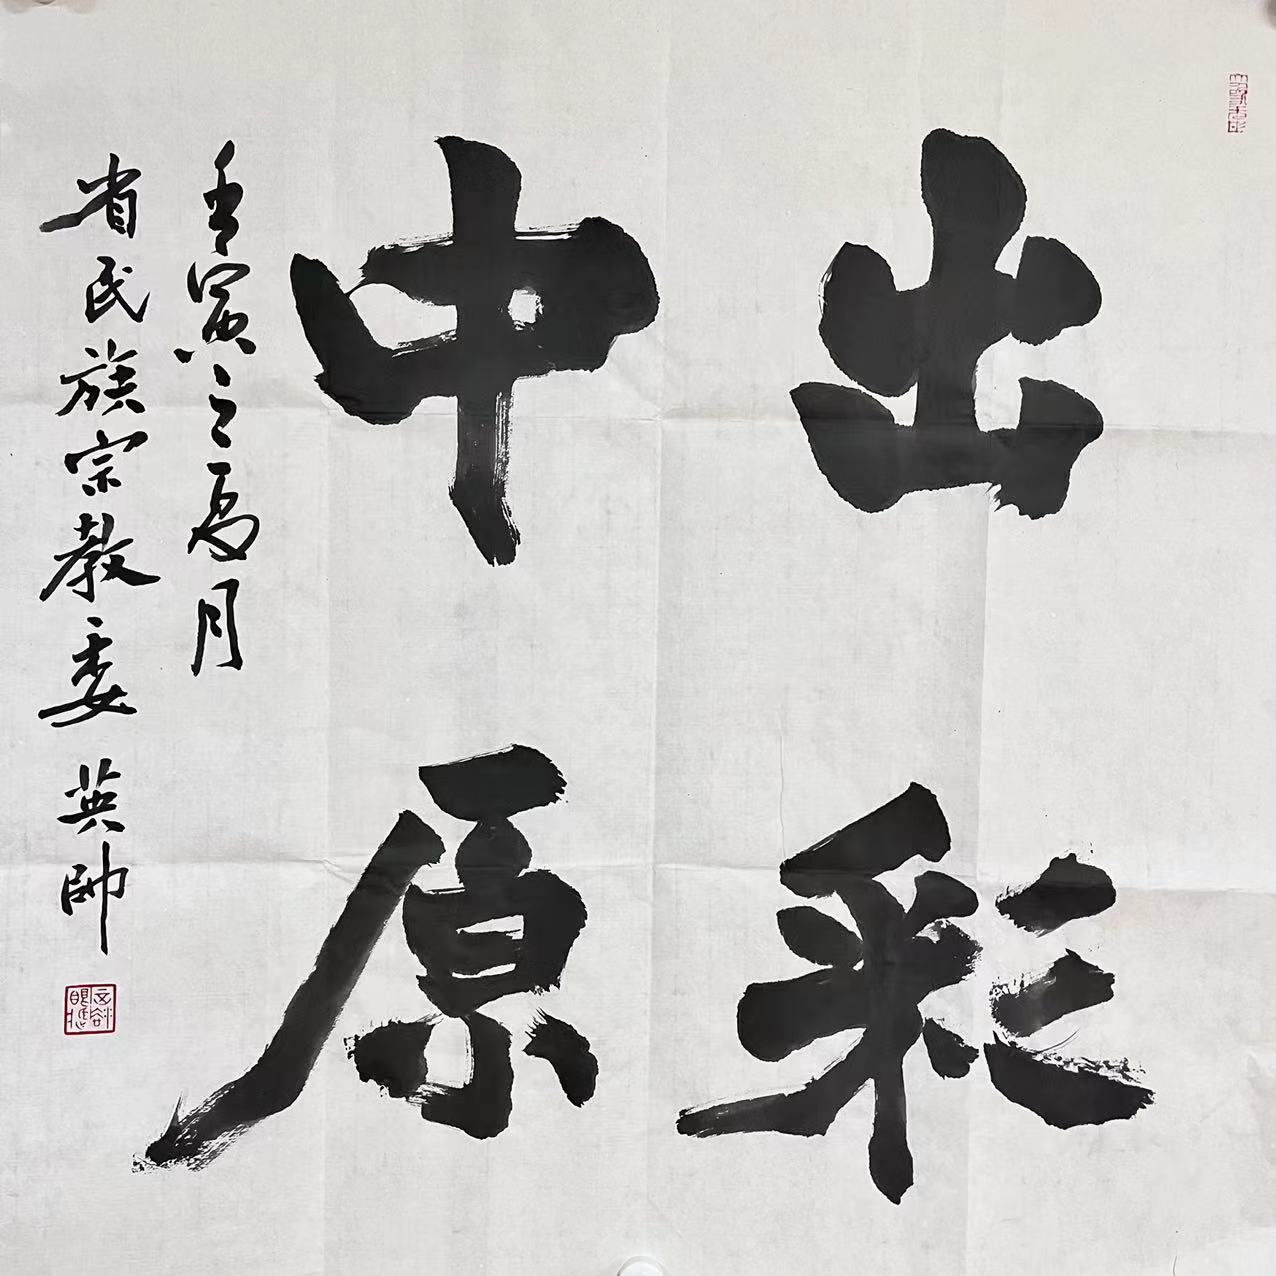 出彩
中原
壬寅之夏月
省民族宗教委 英帥